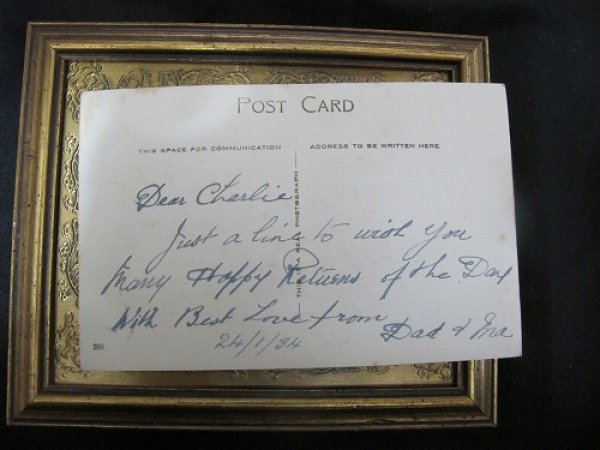 POST CARD
THIS SPACE FOR COMMUNICATION
ADDRESS TO BE WRITTEN HERE
THIS IS A REAL PHOTOGRAPH
Dear Charlie
Just a line to wish You
Many Happy Returns of the Day
With Best Love from
Dad & Ma
24/1/34